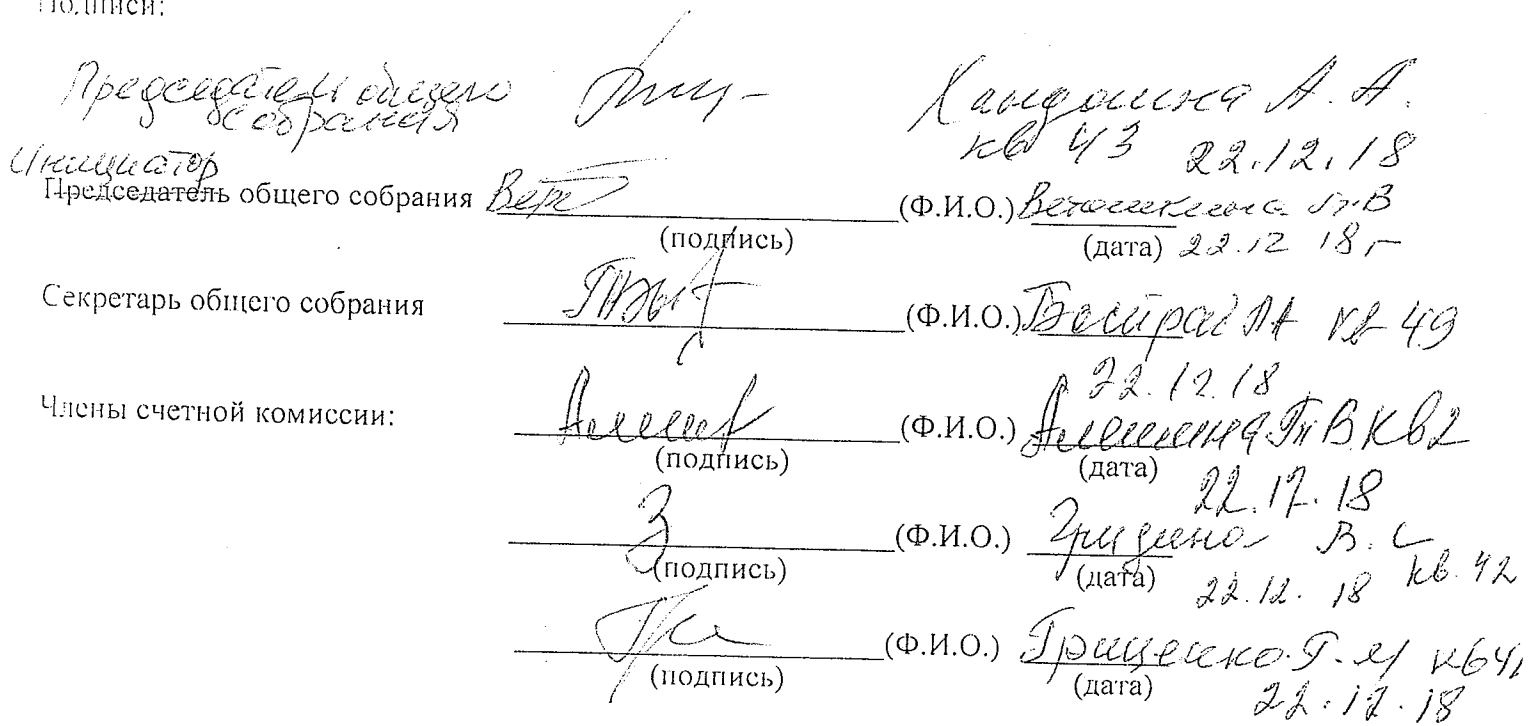 Подписи:
Председатель общего собрания
Хандошка А. А.
кв 43 22.12.18
Инициатор
Председатель общего собрания (Ф.И.О.) Ветошкина В
(подпись) (дата) 22.12 18 г
Секретарь общего собрания (Ф.И.О.) кв 49
22.12.18
Члены счетной комиссии: (Ф.И.О.) Алешина Т В кв2
(подпись) (дата)
22.12.18
(Ф.И.О.) В. С
(подпись) (дата) 22.12. 18 кв. 42
(Ф.И.О.) Гриценко Г. М
(подпись) (дата)
22.12.18